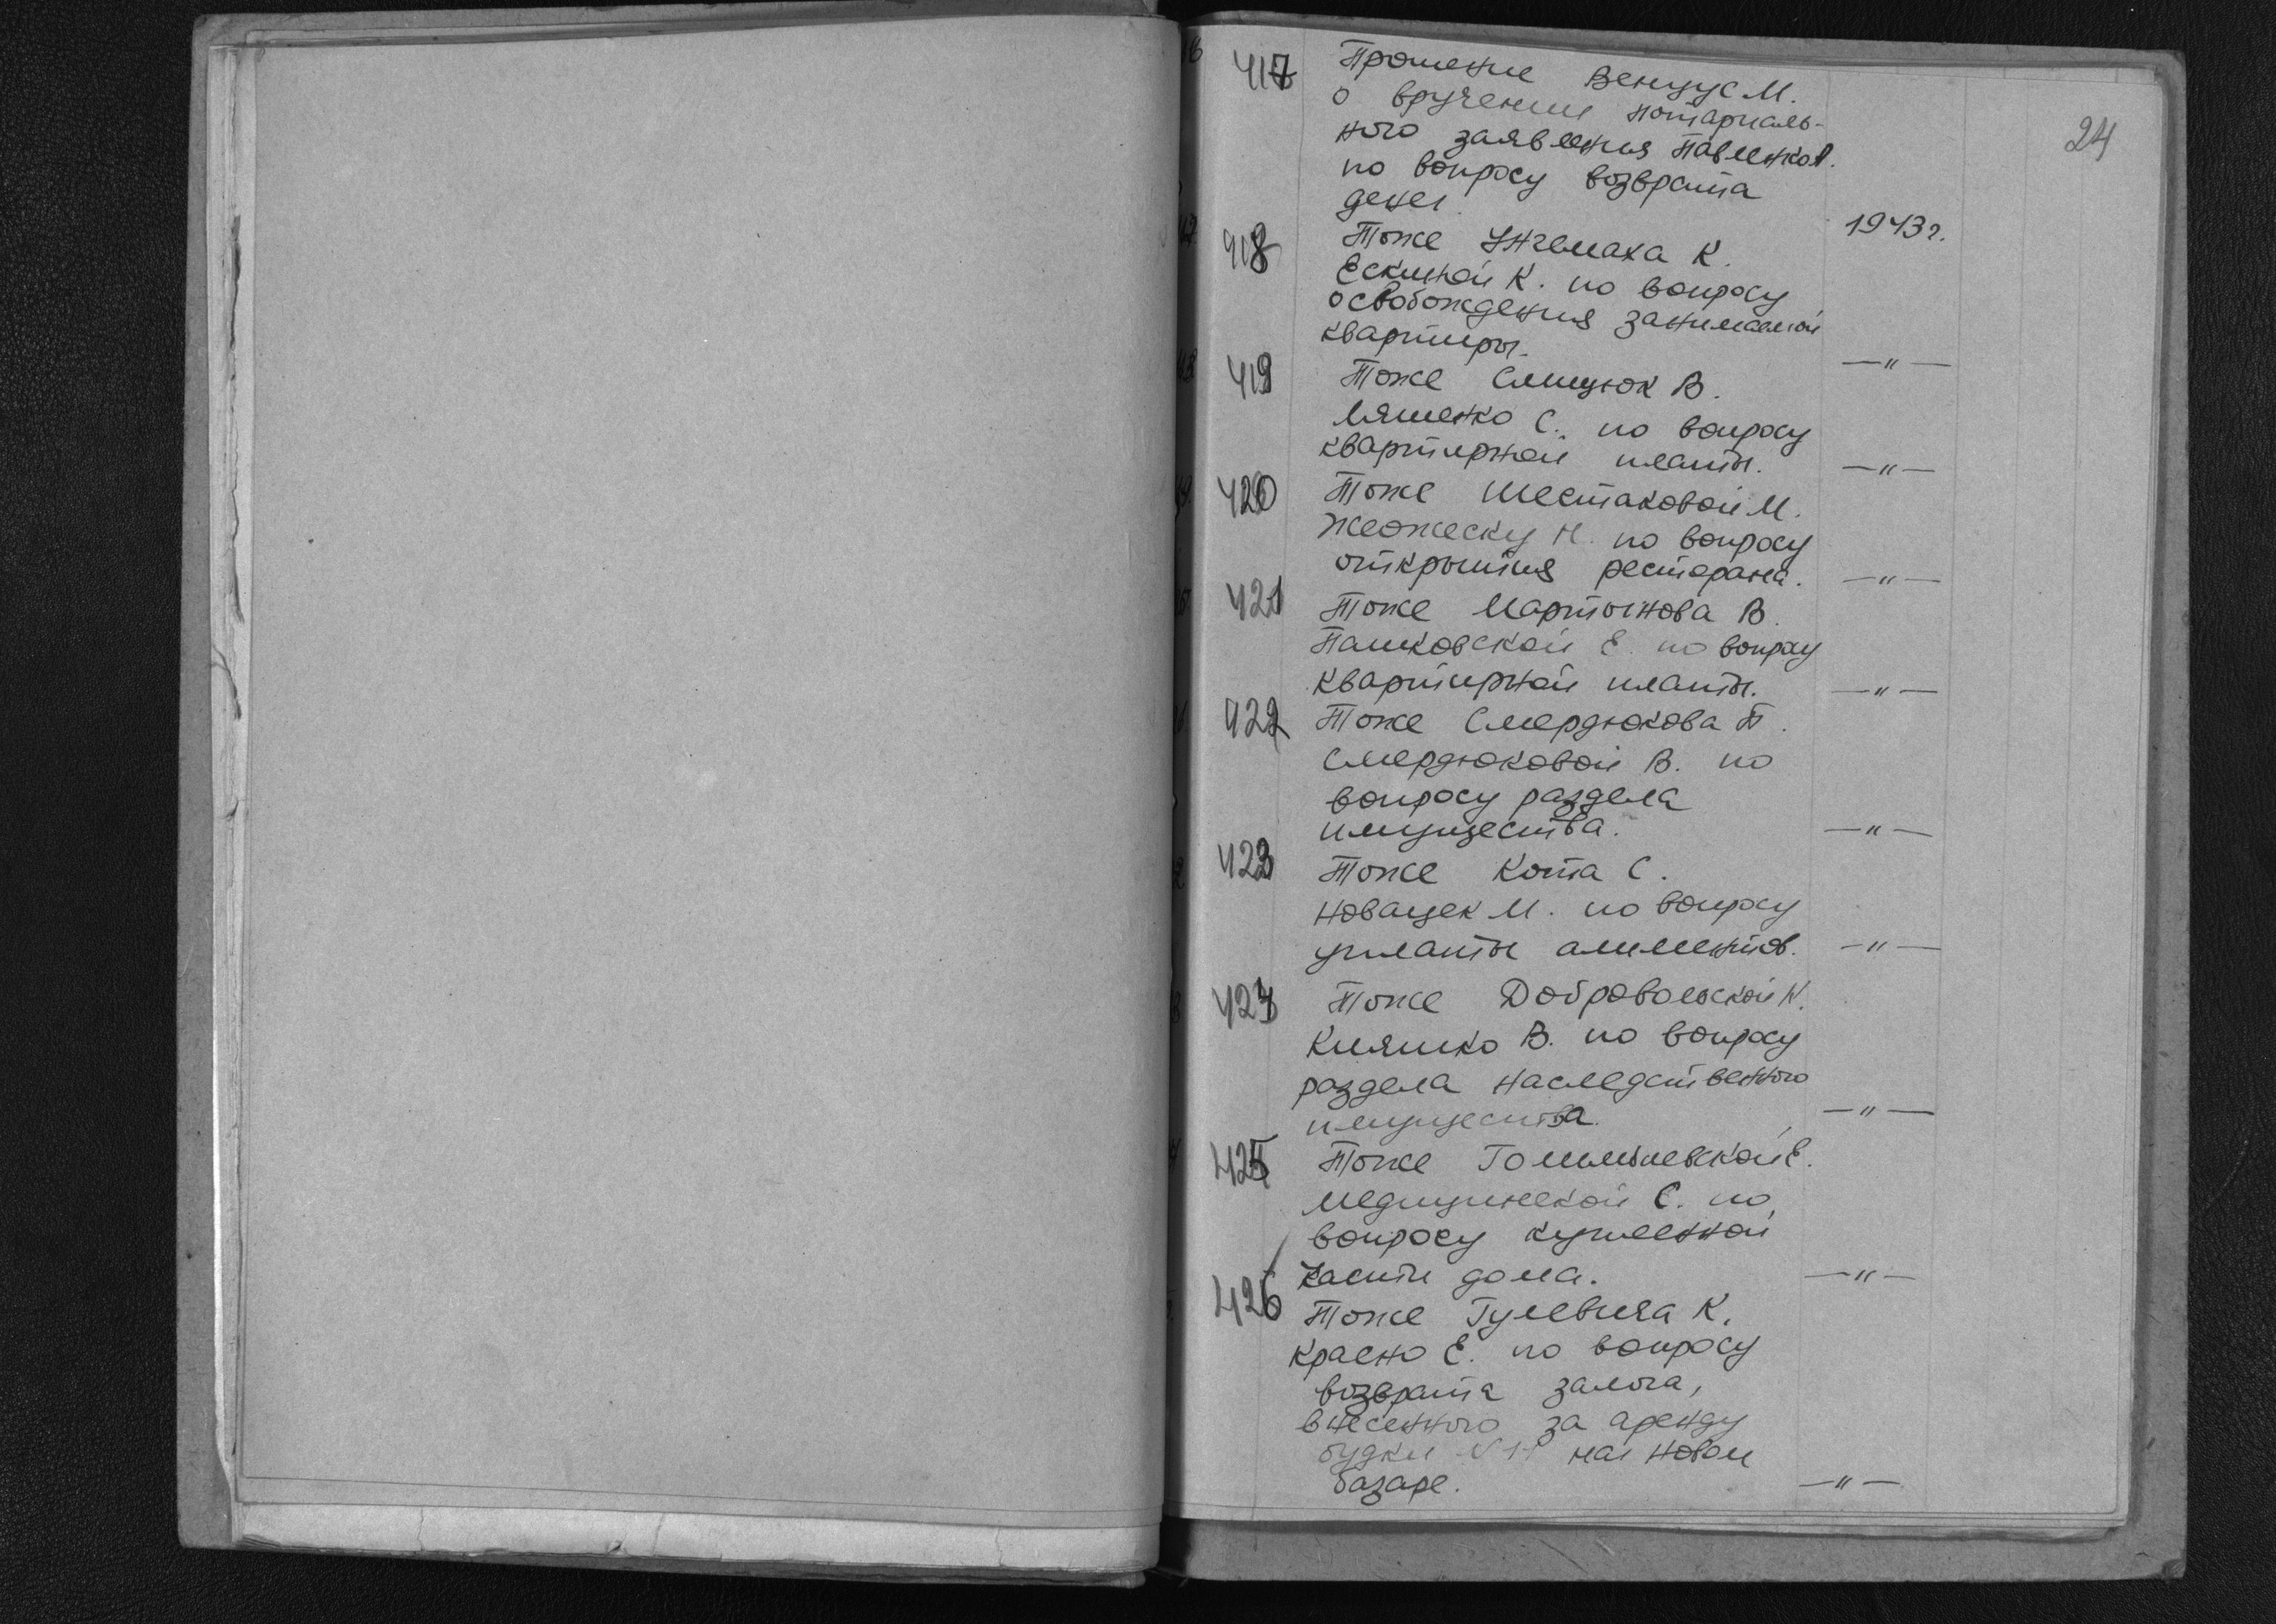 24
417 Прошение Венцус М.
о вручении нотариаль-
ного заявления Павленко
по вопросу возврата
денег. 1943 г.
418 Тоже К.
Ескиной К. по вопросу
освобождения занимаемой
квартиры. —"—
419 Тоже Слицюк В.
Ляшенко С. по вопросу
квартирной платы. —"—
420 Тоже Шестаковой М.
Жеожеску Н. по вопросу
открытия ресторана. —"—
421 Тоже Мартынова В.
Пашковской Е. по вопросу
квартирной платы. —"—
422 Тоже Смердюкова П.
Смердюковой В. по
вопросу раздела
имущества. —"—
423 Тоже Кота С.
Новацек М. по вопросу
уплаты алиментов. —"—
424 Тоже Добровольской Н.
Княшко В. по вопросу
раздела наследственного
имущества. —"—
425 Тоже Е.
Медицинской С. по
вопросу купленной
части дома. —"—
426 Тоже Гулевича К.
Красно Е. по вопросу
возврата залога,
внесенного за аренду
будки на Новом
базаре. —"—